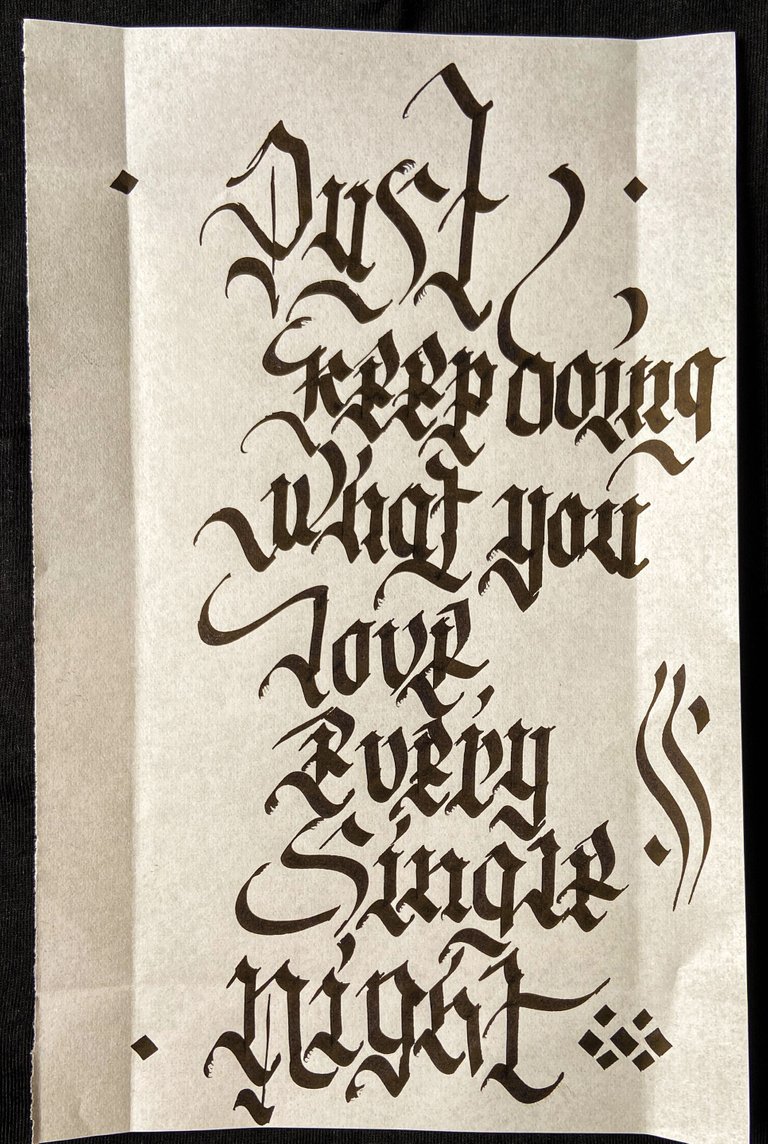 Just
keep doing
What you
love
Every
Single
night